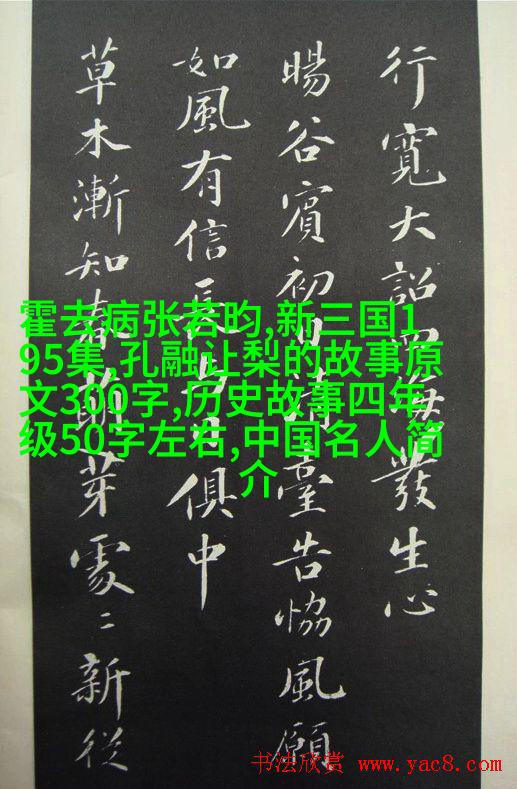 行寬大詔四海發生心
暘谷賓初日清臺告協風願
如風有信長與日俱中
草木漸知春萌芽處〻新從
霍去病张若昀,新三国1
95集,孔融让梨的故事原
文300字,历史故事四年
级50字左右,中国名人简
介
书法欣赏 www.yac8.com